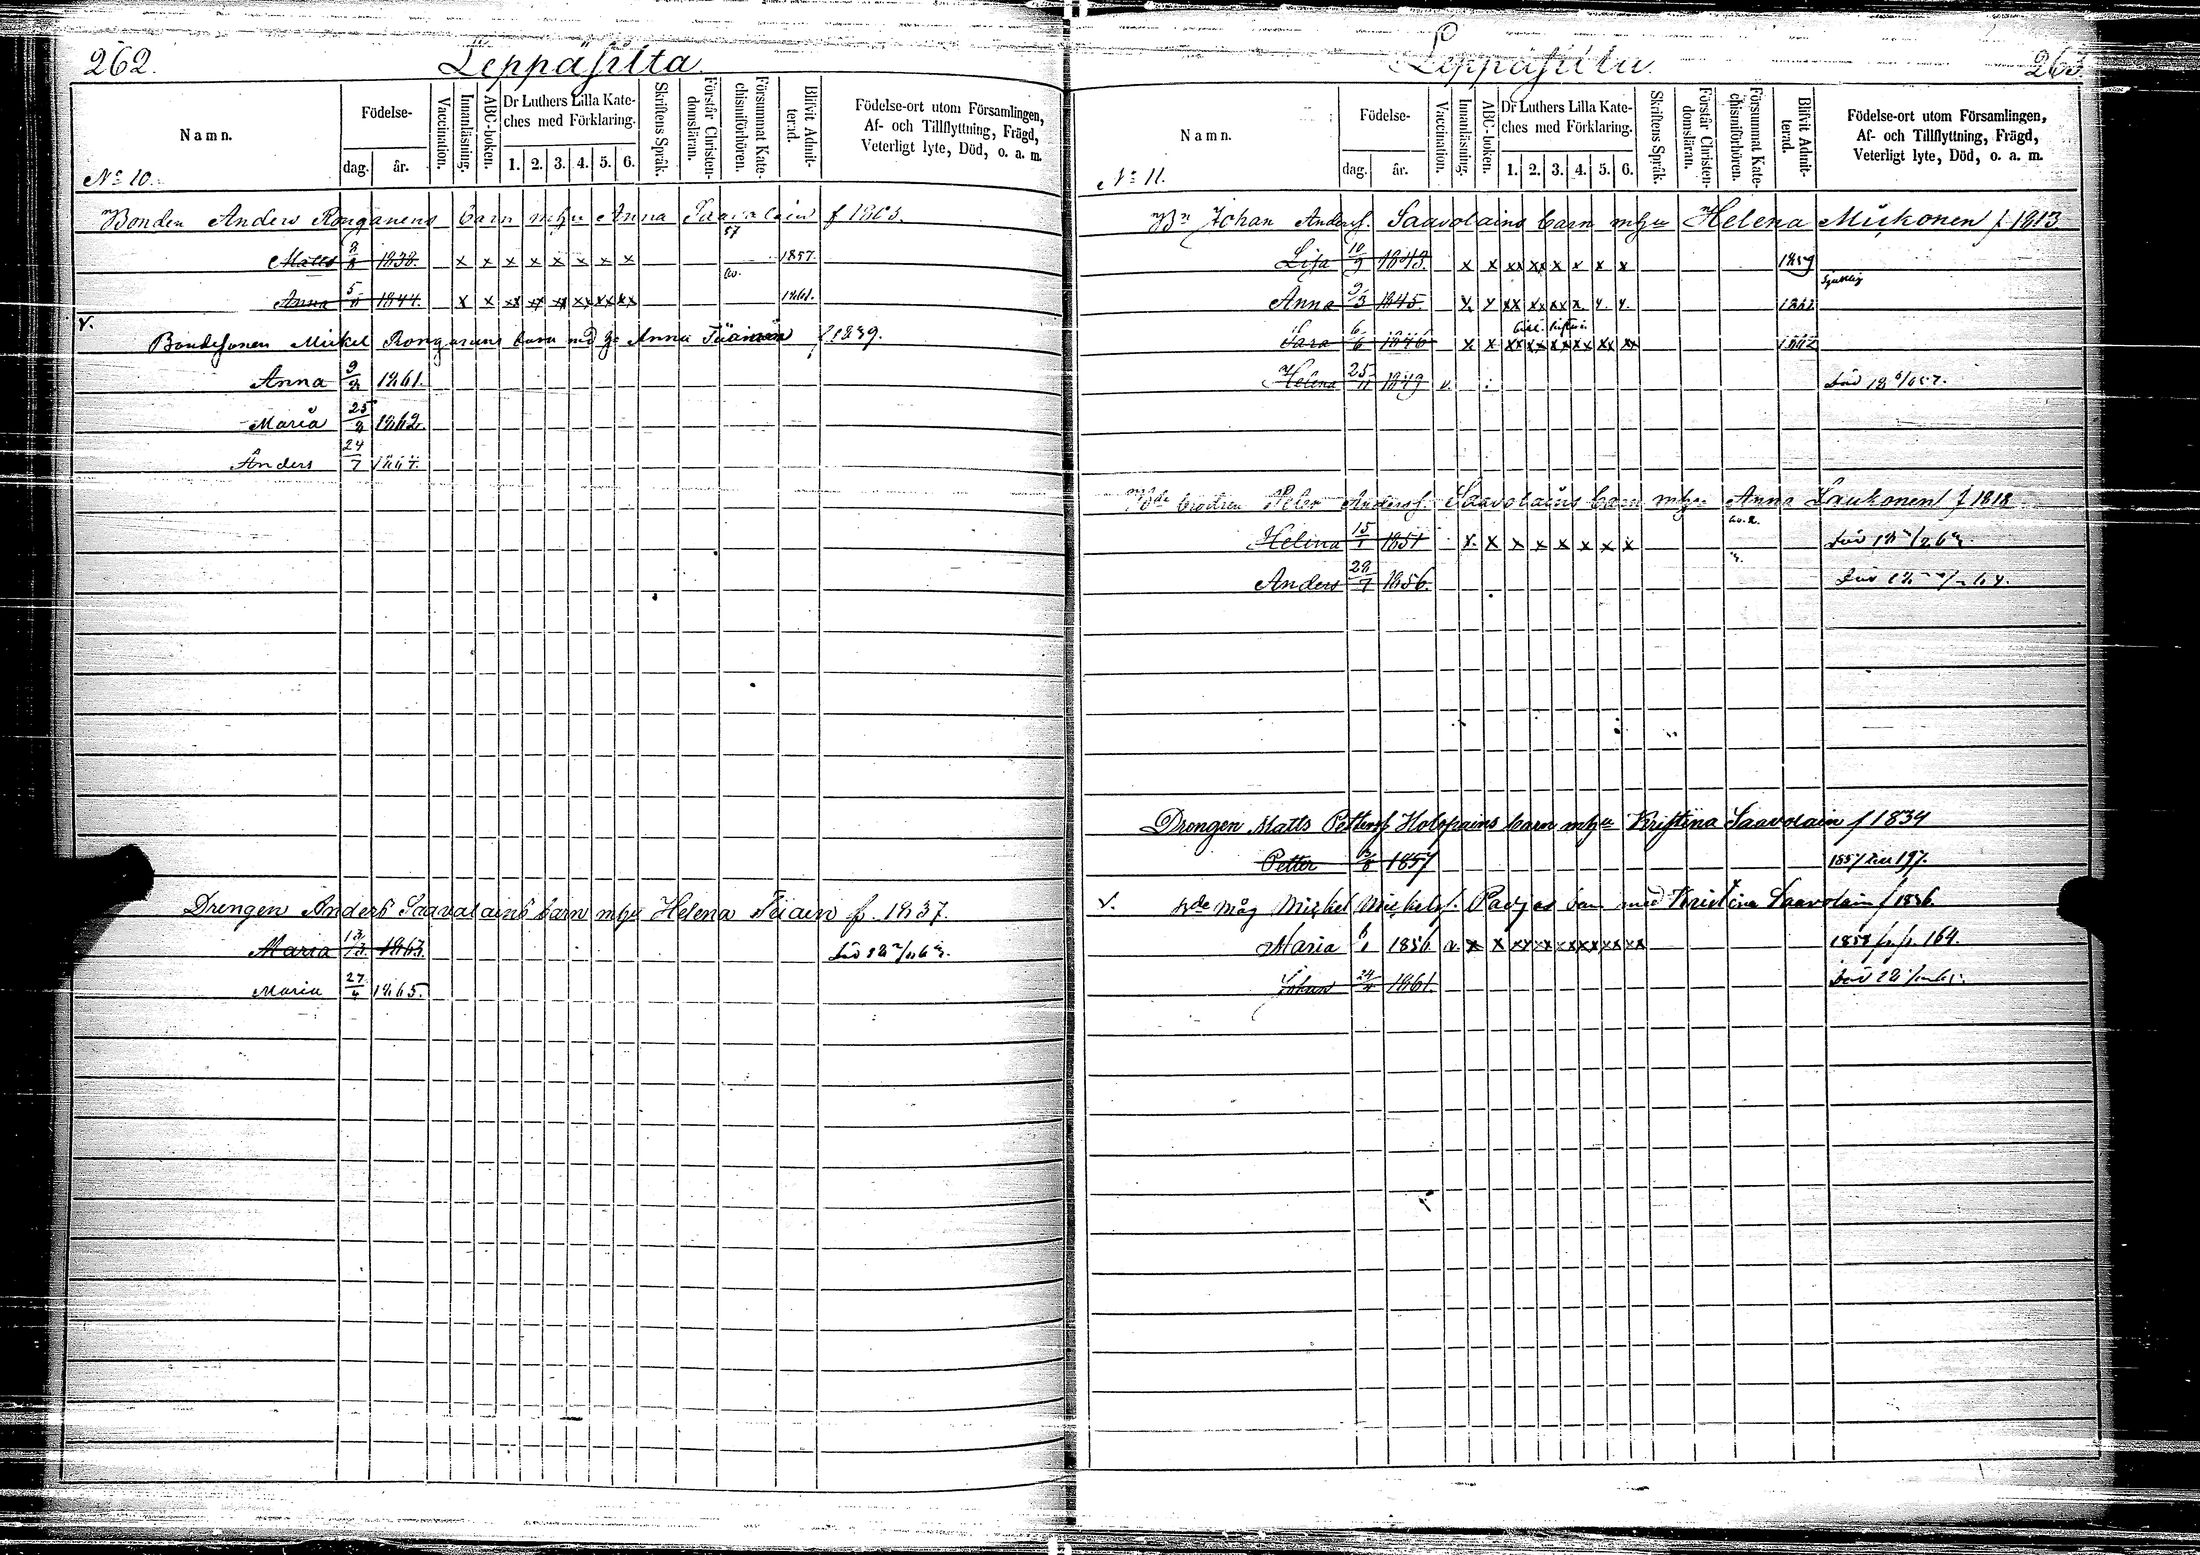 262. Leppäsilta
Namn. Födelse- dag. år. Vaccination. Innanläsning. ABC-boken. Dr Luthers Lilla Kateches med Förklaring. 1. 2. 3. 4. 5. 6. Skriftens Språk. Förstår Christendomsläran. Försummat Katechismiförhören. Blifvit Admitterad. Födelse-ort utom Församlingen, Af- och Tillflyttning, Frägd, Veterligt lyte, Död, o. a. m.
No 10.
Bonden Anders Ronganens barn mhu Anna Saavolain f 1803.
57
Matts 1838. x x x x x x x x 1857.
Anna 5 1844. x x xx xx xx xx xx xx 1861.
v.
Bondesonen Mickel Ronganens barn med Anna f 1839.
Anna 9/2 1861.
Maria 25/2 1862.
Anders 24/7 1864.
Drengen Anders Saavalains barn mhu Helena Tiiain f. 1837.
Maria 13/3 1863. död
Maria 27/4 1865.
Leppäsilta 263
Namn. Födelse- dag. år. Vaccination. Innanläsning. ABC-boken. Dr Luthers Lilla Kateches med Förklaring. 1. 2. 3. 4. 5. 6. Skriftens Språk. Förstår Christendomsläran. Försummat Katechismiförhören. Blifvit Admitterad. Födelse-ort utom Församlingen, Af- och Tillflyttning, Frägd, Veterligt lyte, Död, o. a. m.
No 11.
Bn Johan Andersf. Saavolains barn mhu Helena Miikonen f 1813.
Lisa 10/9 1843. x x xx xx x x x x 1859
Anna 9/3 1845. x x xx xx xx x x x 1862
Sara 6/6 1846 x x xx xx xx xx xx xx 1862
Helena 25/11 1849 v. död
brodren Peter Andersf. Saavolains barn mhu Anna Laukonen f 1818
Helena 15/1 1851 x x x x x x x x död
Anders 28/7 1856. död
Drengen Matts Pettersf Holopains barn mhu Kristina Saavolain f 1834
Petter 13/8 1857 1857 197.
v. måg Mickel Mickelsf. barn med Kristina Saavolain f 1836.
Maria 6/1 1856 v. x x xx xx xx xx xx xx 1858 p. 164.
Johan 24 1861. död